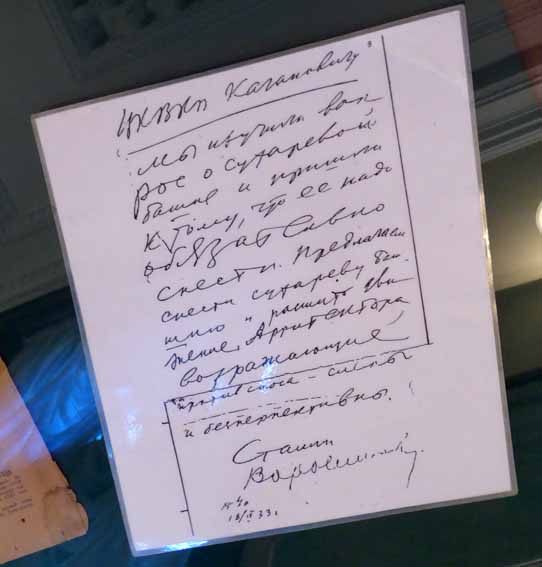 ЦКВКП Кагановичу
Мы изучили воп
рос о Сухаревой
башне и пришли
к тому, что ее надо
обязательно
снести. Предлагаем
снести Сухареву баш-
ню и расшить дви-
жение. Архитектора
возражающие
против сноса - слепы
и бесперспективны.
Сталин
Ворошилов.
№ 40
18/IX 33 г.